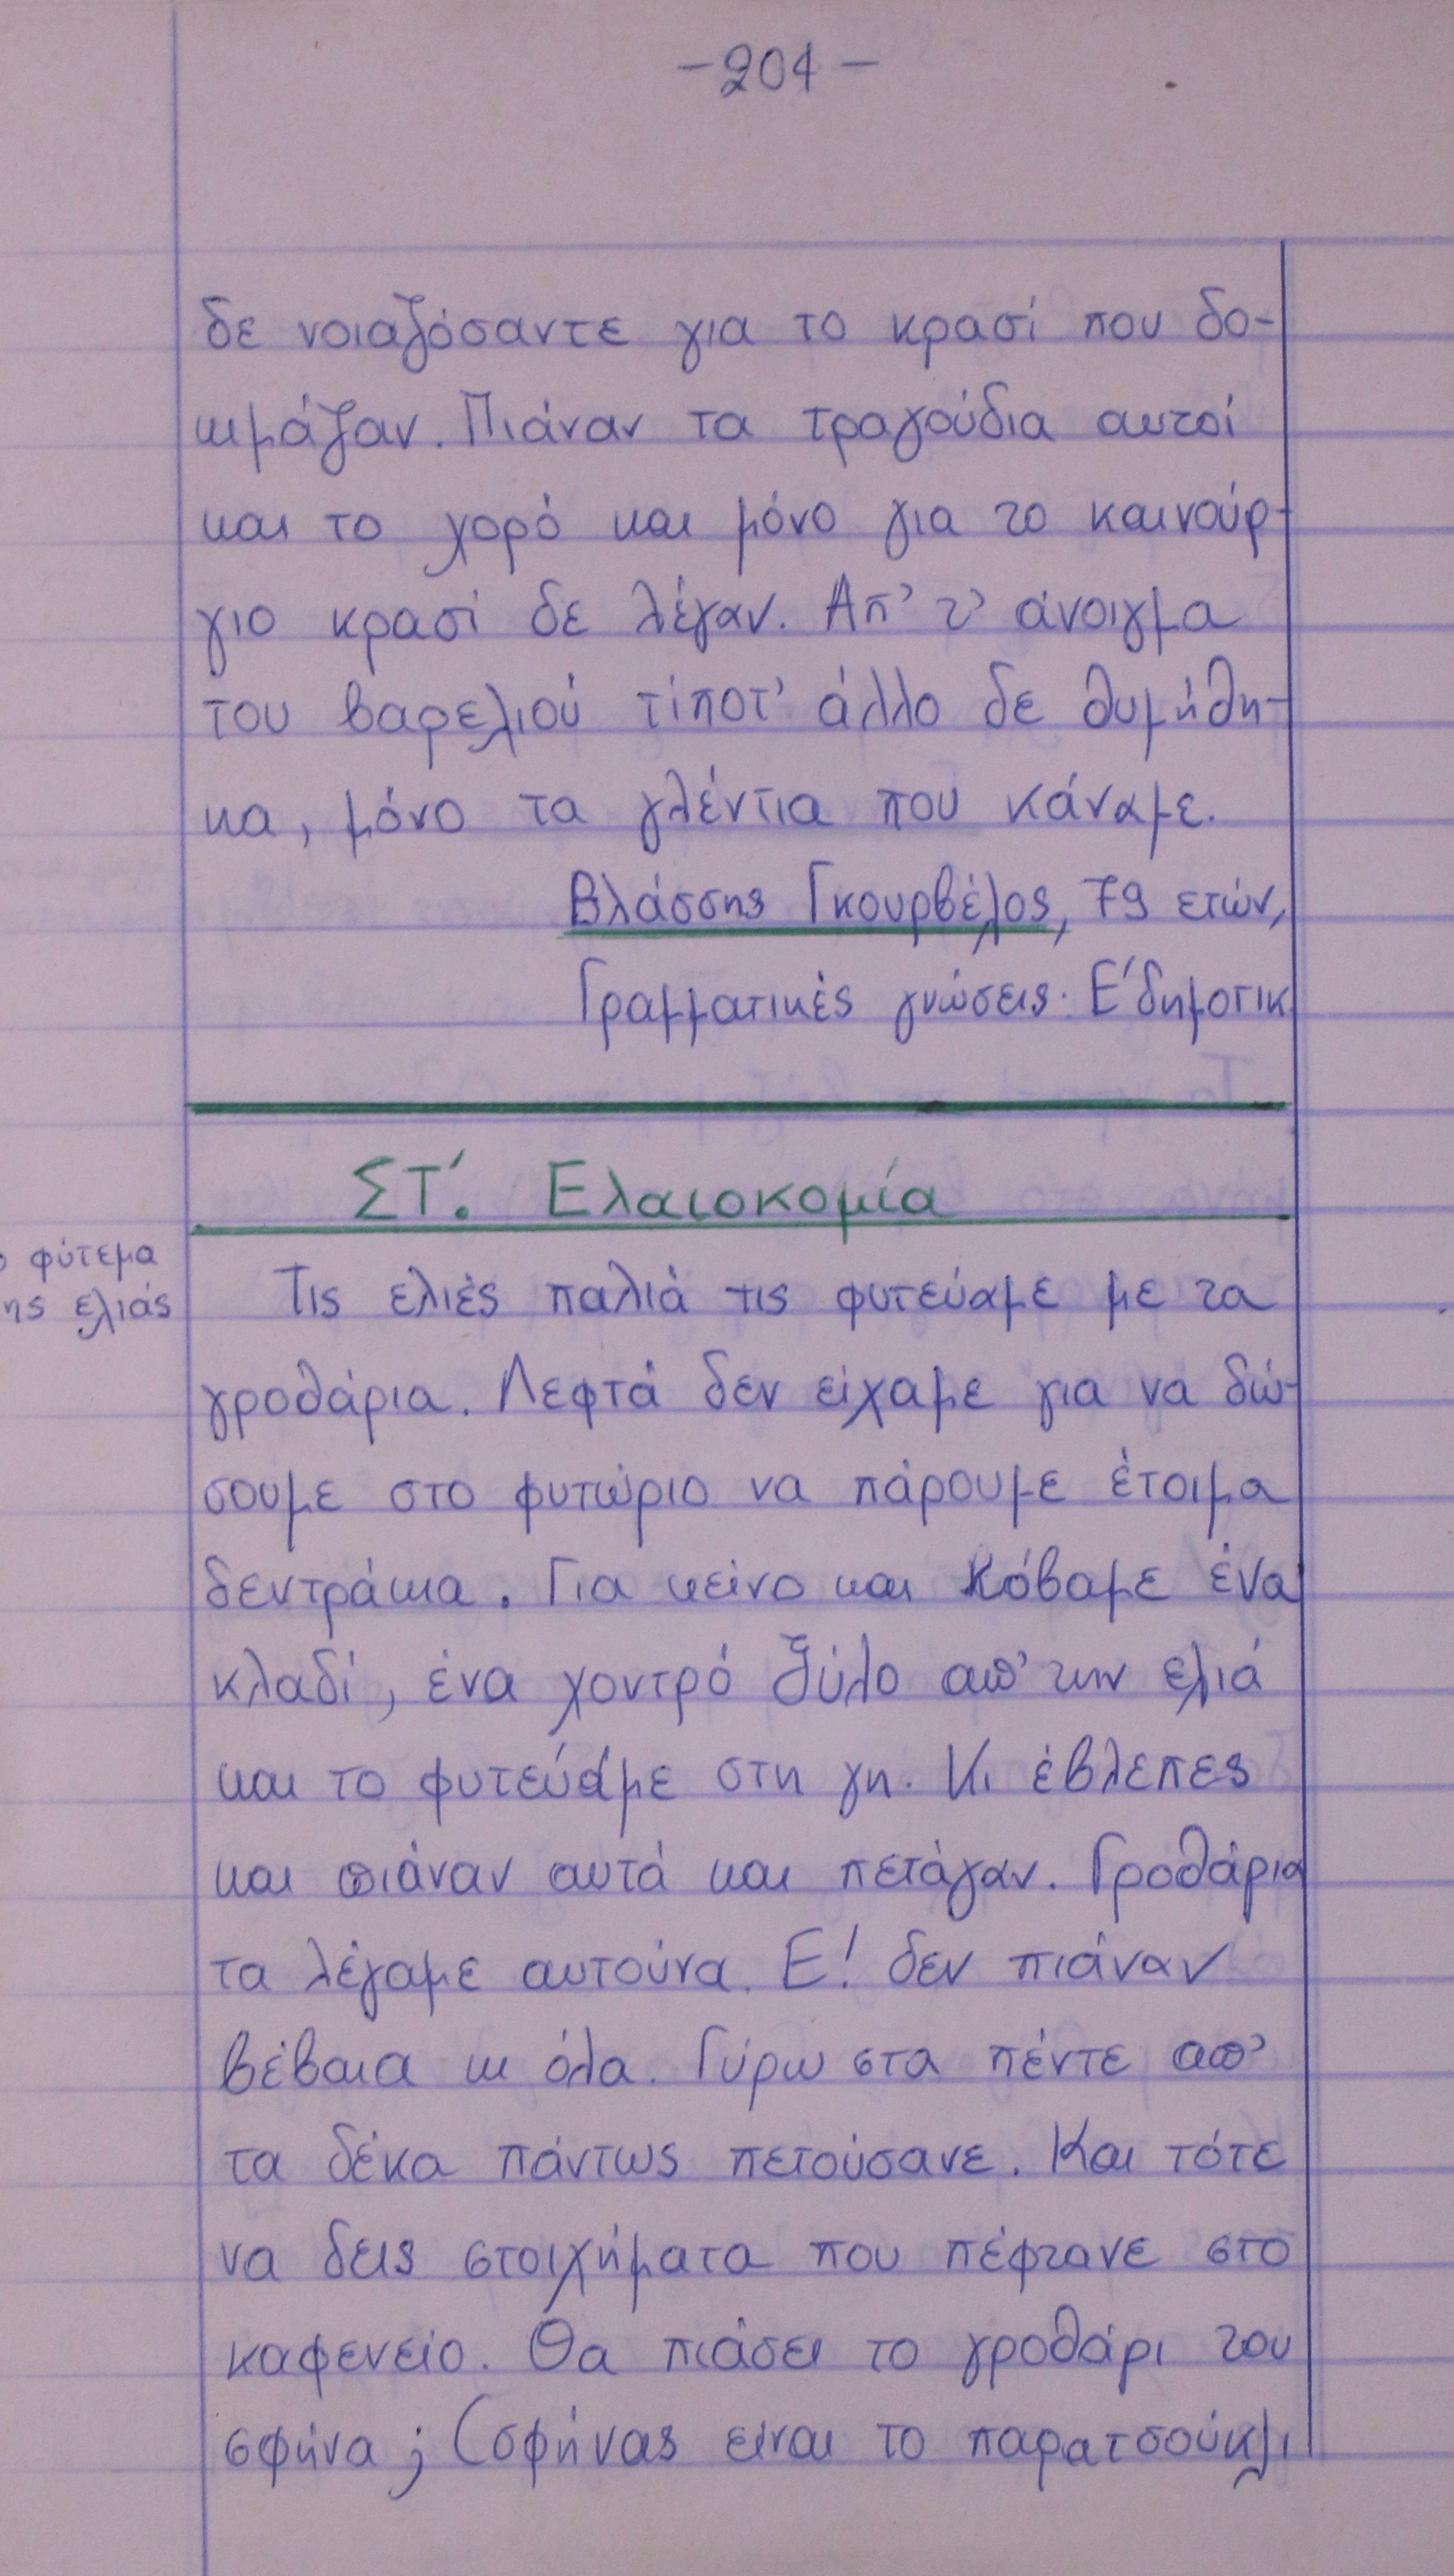 -204-
δε νοιαζόσαντε για το κρασί που δο-
κιμάζαν. Πιάναν τα τραγούδια αυτοί
και το χορό και μόνο για το καινούρ-
γιο κρασί δε λέγαν. Απ' τ' άνοιγμα
του βαρελιού τίποτ' άλλο δε θυμήθη-
κα, μόνο τα γλέντια που κάναμε.
Βλάσσης Γκουρβέλος, 79 ετών,
Γραμματικές γνώσεις: Ε' δημοτικ
ΣΤ'. Ελαιοκομία
φύτεμα
ης ελιάς
Τις ελιές παλιά τις φυτεύαμε με τα
γροθάρια. Λεφτά δεν είχαμε για να δώ-
σουμε στο φυτώριο να πάρουμε έτοιμα
δεντράκια. Για κείνο και κόβαμε ένα
κλαδί, ένα χοντρό ξύλο απ' την ελιά
και το φυτεύαμε στη γη. Κι έβλεπες
και πιάναν αυτά και πετάγαν. Γροθάρια
τα λέγαμε αυτούνα. Ε! δεν πιάναν
βέβαια κι όλα. Γύρω στα πέντε απ'
τα δέκα πάντως πετούσανε. Και τότε
να δεις στοιχήματα που πέφτανε στο
καφενείο. Θα πιάσει το γροθάρι του
σφήνα; (σφήνας είναι το παρατσούκλι